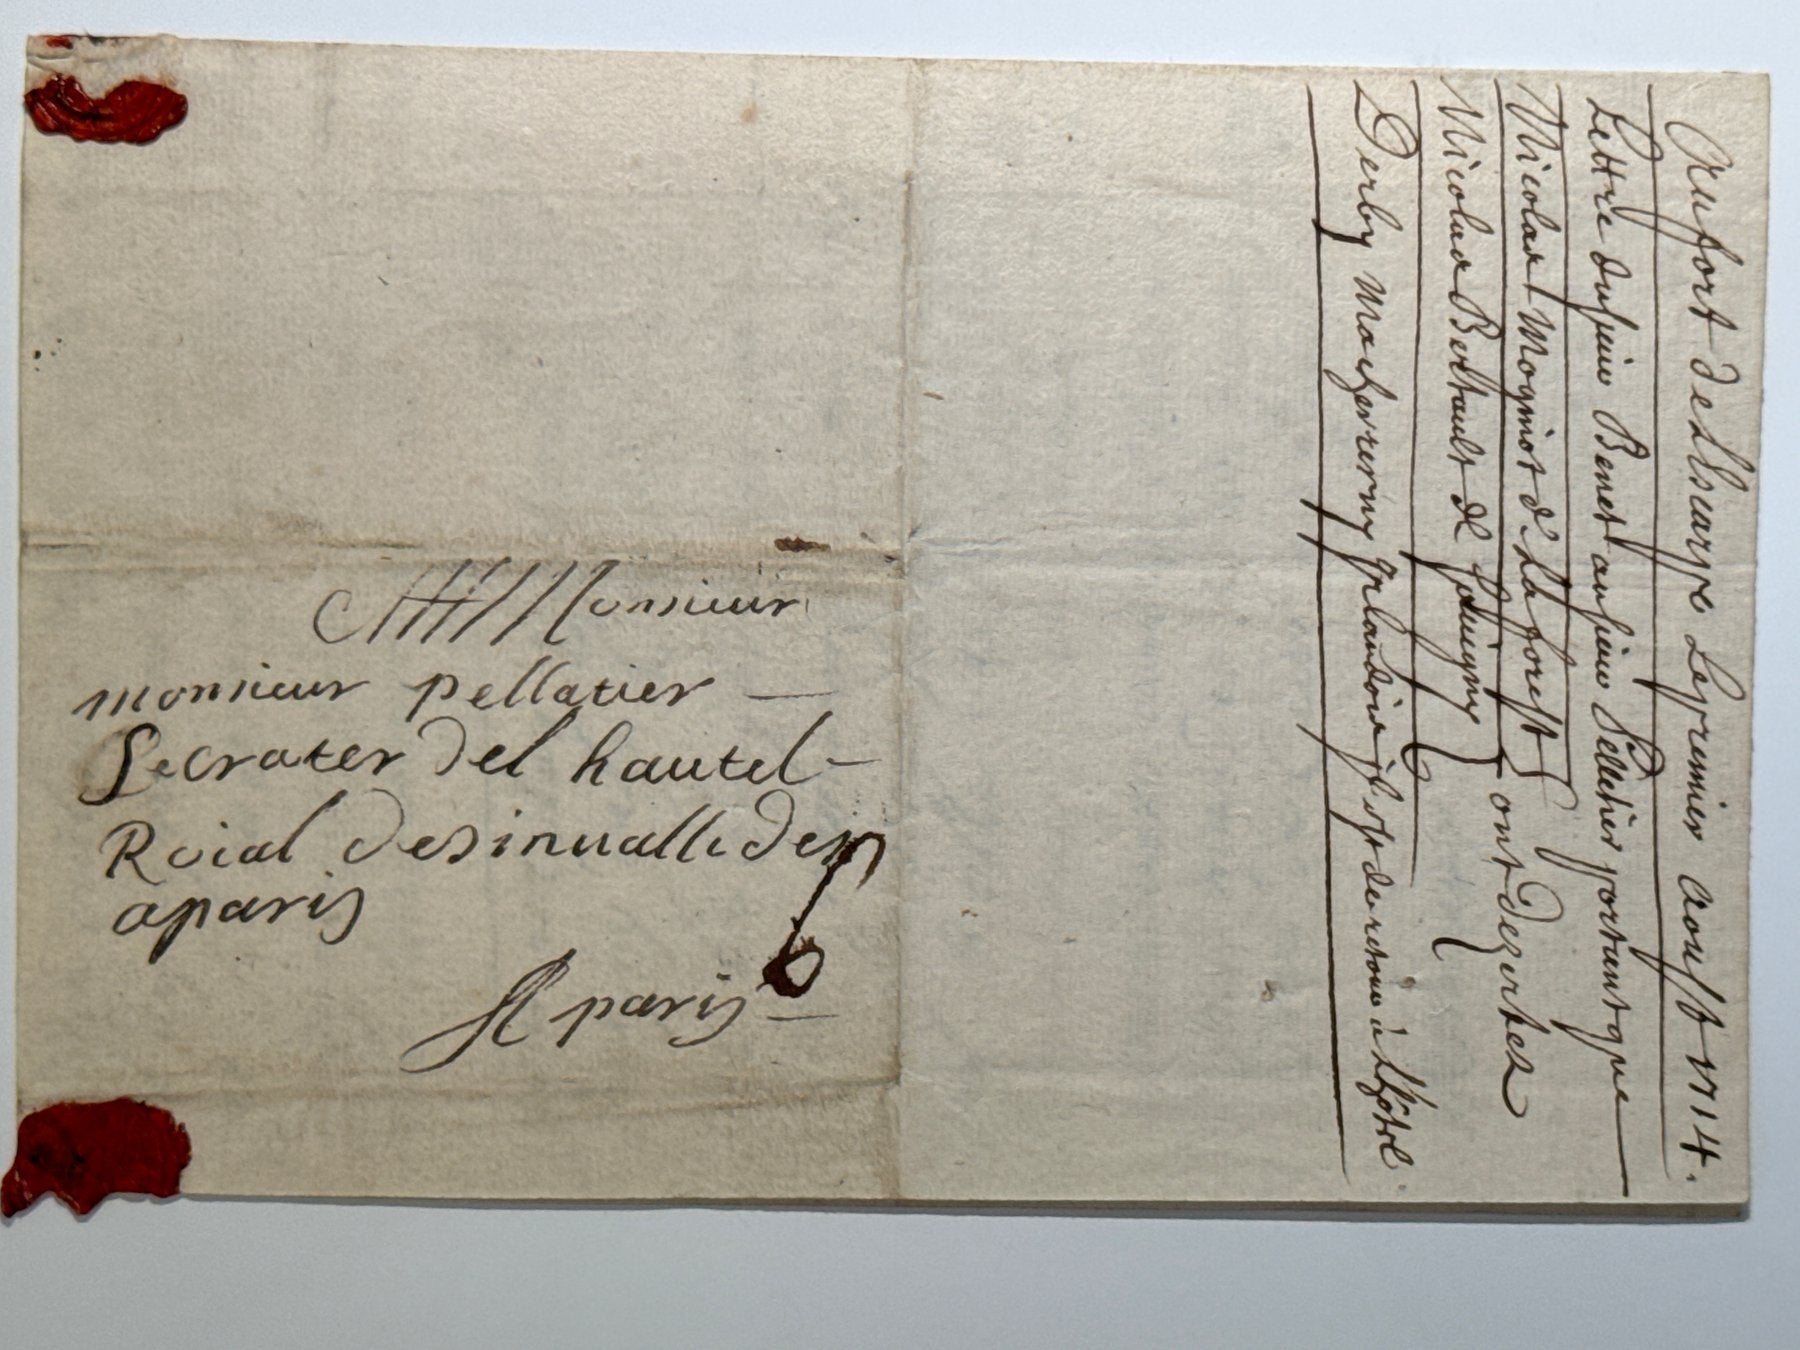 A Monsieur
monsieur pellatier
Secrater del hautel
Roial desinuallides
aparis
A paris
6
Au fort de L'Scarpe Le premier aoust 1714.
Lettre du sieur Benet au sieur Pelletier portant que
Nicolas Mogniot d. La forest
Nicolas Bertault de
ont dezertez
Derby Macferreny jrlandois jl est de retour a L'hotel